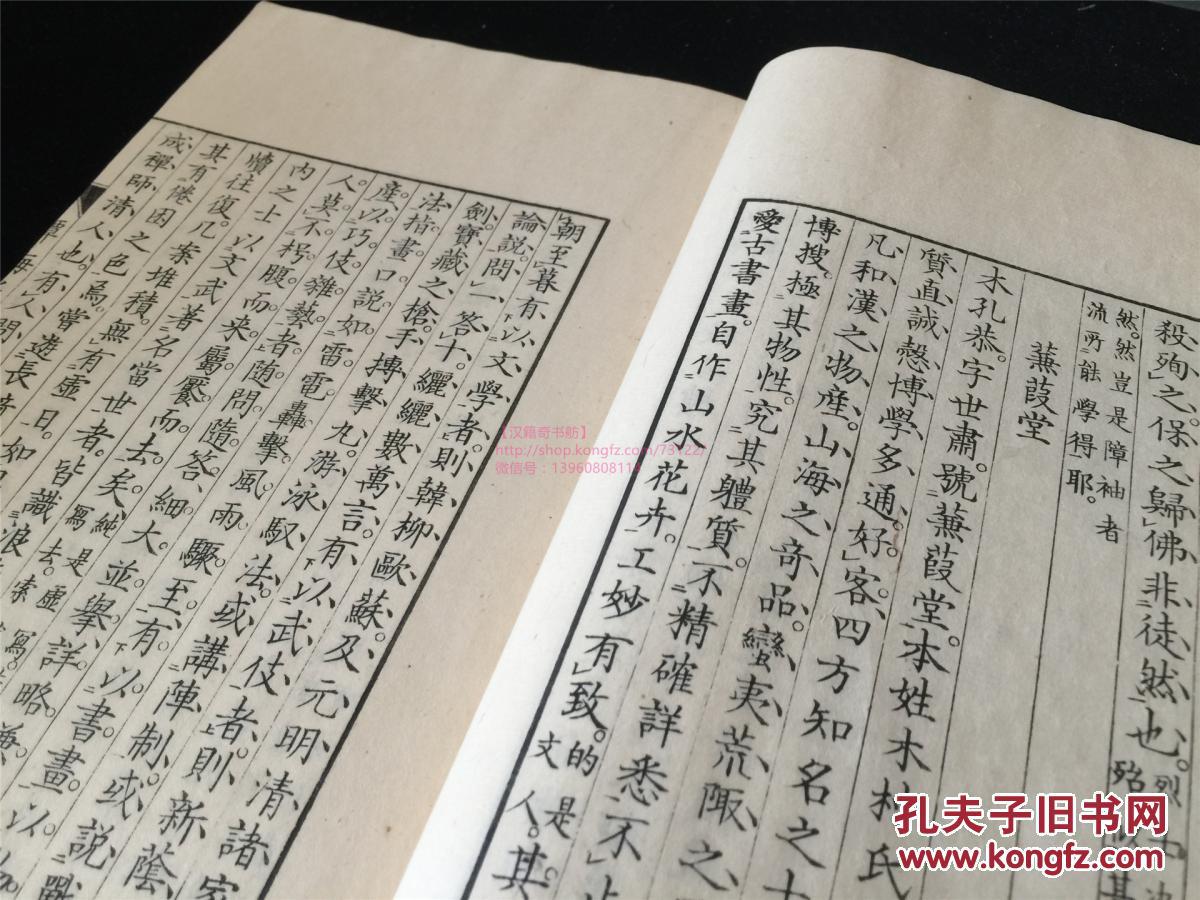 殺殉之保之歸佛非徒然也
然然豈是障袖者
流所能學得耶
蒹葭堂
木孔恭字世肅號蒹葭堂本姓木村氏
質直誠慤博學多通好客四方知名之士
凡和漢之物産山海之奇品蠻夷荒陬之
博搜極其物性究其軆質不精確詳悉不止
愛古書畫自作山水花卉工妙有致的是
文人其
朝至暮有以文學者則韓柳歐蘇及元明清諸家
論説問一答十纚纚數萬言有以武伎者則新蔭
劍寶藏之槍手搏擊丸游泳馭法或講陣制或説戰
法指畫口説如雷電轟擊風雨驟至有以書畫以物
產以巧伎雜藝者隨問隨答細大並擧詳略兼
人莫不枵腹而来屬饜而去矣純是
寫去虛
内之士以文武著名當世者皆識
牘往復几案堆積無有虛日如
其有倦困之色焉嘗遊長
成禪師清人也有人問
【汉籍奇书舫】
http://shop.kongfz.com/73122/
微信号：13960808114
孔夫子旧书网
www.kongfz.com